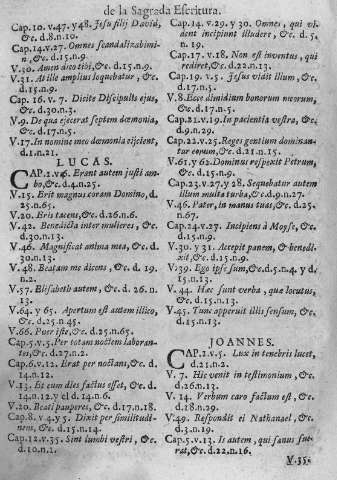 de la Sagrada Escritura.
Cap.10. v.47. y 48. Jesu fili David,
&c. d.8.n.10.
Cap.14.v.27. Omnes scandalizabimi-
ni, &c. d.15.n.9.
V.30. Amen dico tibi, &c. d.15.n.9.
V.31. At ille amplius loquebatur, &c.
d.15.n.9.
Cap. 16. v. 7. Dicite Discipulis ejus,
&c. d.30.n.3.
V.9. De qua ejecerat septem dæmonia,
&c. d.17.n.5.
V.17. In nomine meo dæmonia ejicient,
d.1.n.21.
LUCAS.
CAP.1.v.6. Erant autem justi am-
bo, &c. d.4.n.25.
V.15. Erit magnus coram Domino, d.
25.n.65.
V.20. Eris tacens, &c. d.26.n.6.
V.42. Benedicta inter mulieres, &c.
d.30.n.13.
V.46. Magnificat anima mea, &c. d.
30.n.13.
V.48. Beatam me dicens, &c. d. 19.
n.2.
V.57. Elisabeth autem, &c. d.26. n.
13.
V.64. y 65. Apertum est autem illico,
&c. d.25.n.45.
V.66. Puer iste, &c. d.25.n.65.
Cap.5.v.5. Per totam noctem laboran-
tes, &c. d.27.n.2.
Cap.6.v.12. Erat per noctans, &c. d.
14.n.12.
V.13. Et cum dies factus esset, &c. d.
14.n.12. y el d.14.n.6.
V.20. Beati pauperes, &c. d.17.n.18.
Cap.8. v.4. y 5. Dixit per similitudi-
nem, &c. d.15.n.14.
Cap.12.v.35. Sint lumbi vestri, &c.
d.10.n.1.
Cap.14. v.29. y 30. Omnes, qui vi-
dent incipiunt illudere, &c. d. 5.
n.19.
Cap.17. v.18. Non est inventus, qui
rediret, &c. d.22.n.13.
Cap.19. v.5. Jesus vidit illum, &c.
d.17.n.5.
V.8. Ecce dimidium bonorum meorum,
&c. d.17.n.5.
Cap.21.v.19. In pacientia vestra, &c.
d.9.n.29.
Cap.22.v.25. Reges gentium dominan-
tur eorum, &c. d.21.n.15.
V.61. y 62. Dominus respexit Petrum,
&c. d.15.n.9.
Cap.23.v.27. y 28. Sequebatur autem
illum multa turba, &c. d.9.n.27.
V.46. Pater, in manus tuas, &c. d.25.
n.67.
Cap.24.v.27. Incipiens à Moyse, &c.
d.15.n.9.
V.30. y 31. Accepit panem, & benedi-
xit, &c. d.15.n.9.
V.39. Ego ipse sum, &c. d.5.n.4. y d.
15.n.13.
V.44. Hæc sunt verba, quæ locutus,
&c. d.15.n.13.
V.45. Tunc apperuit illis sensum, &c.
d.15.n.13.
JOANNES.
CAP.1.v.5. Lux in tenebris lucet,
d.21.n.2.
V. 7. Hic venit in testimonium, &c.
d.26.n.13.
V. 14. Verbum caro factum est, &c.
d.18.n.29.
V.49. Respondit ei Nathanael, &c.
d.3.n.19.
Cap.5.v.13. Is autem, qui sanus fue-
rat, &c. d.22.n.16.
V.35.